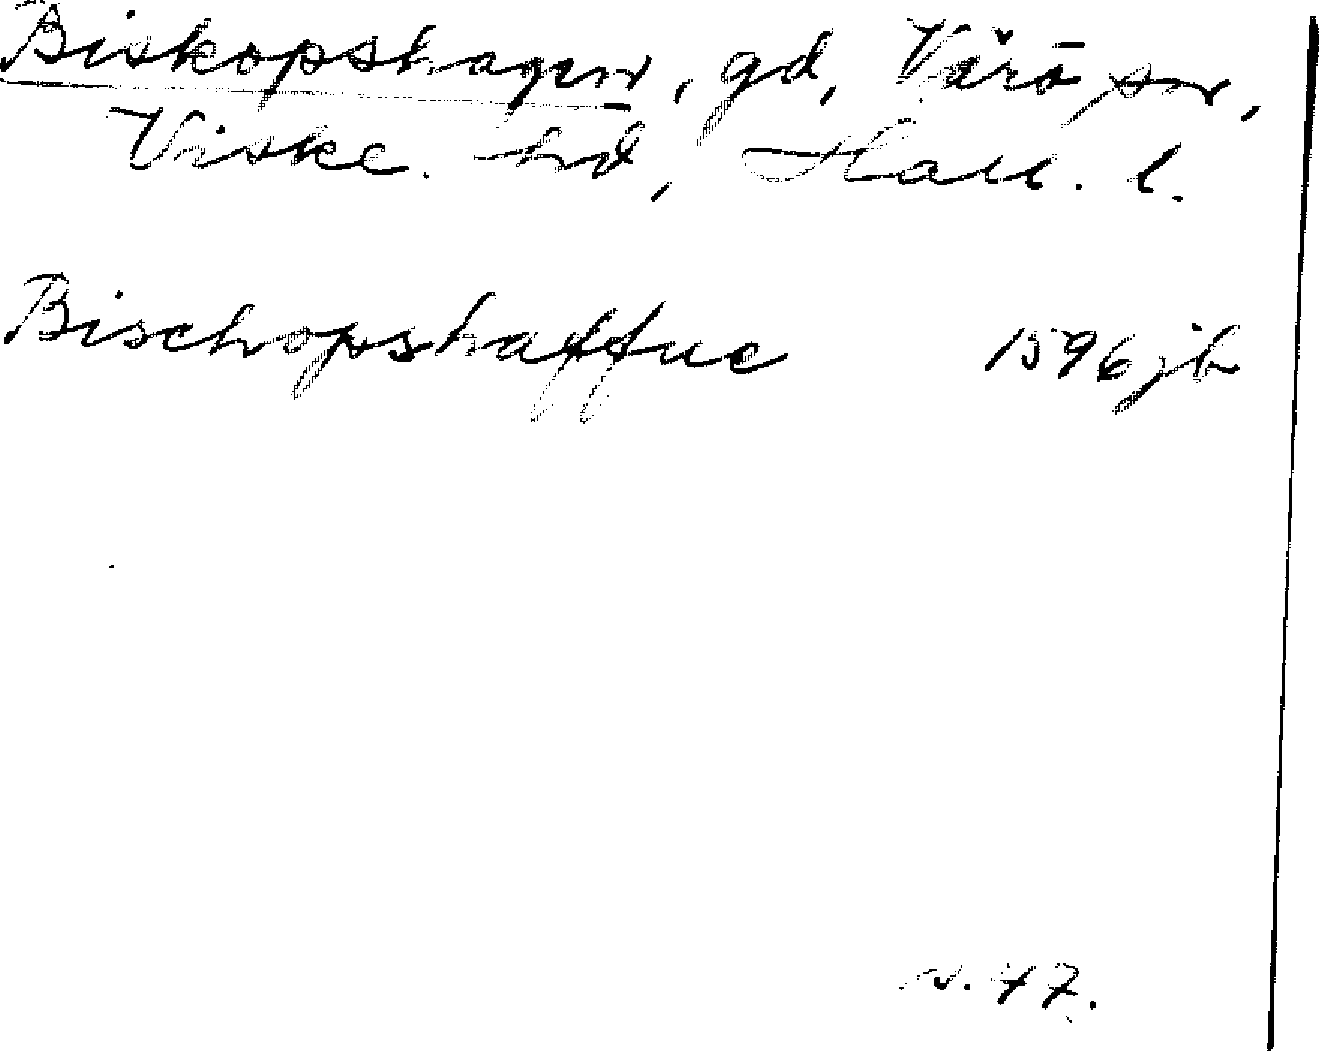 Biskopshagen, gd, Värö sn,
Viske hd, Hall. l.
Bischopshaffue 1596 jb
s. 47.